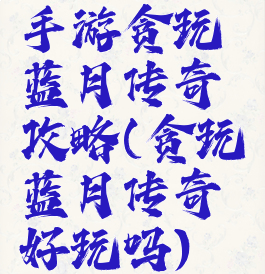 手游贪玩
蓝月传奇
攻略(贪玩
蓝月传奇
好玩吗)